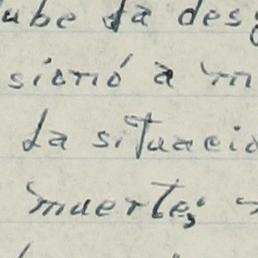 ube la des
sionó a m
La situacio
muerte;